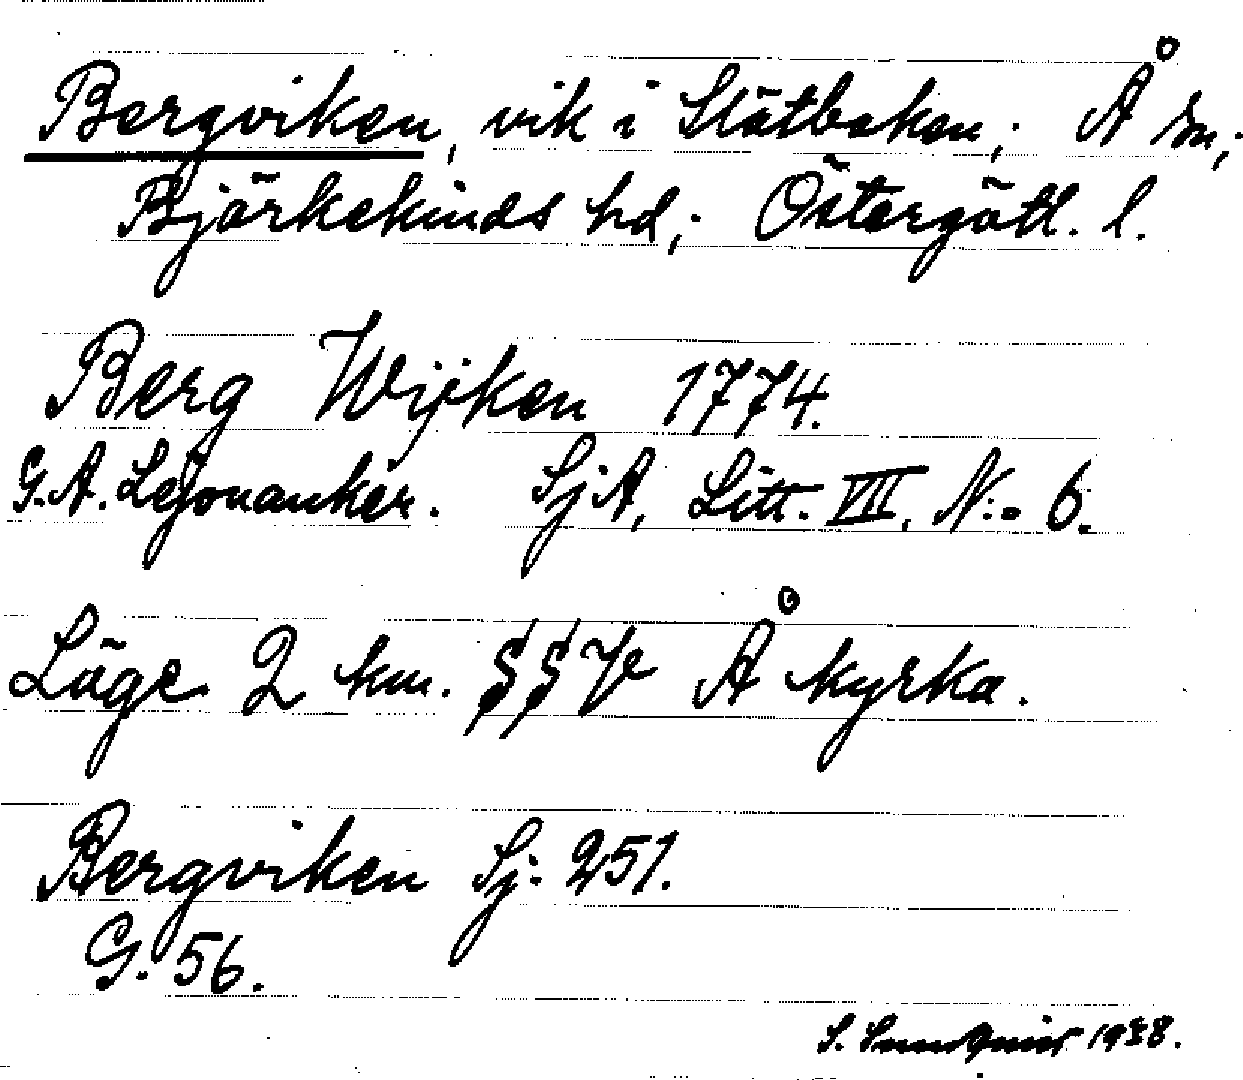 Bergviken, vik i Slätbaken; Å sn;
Björkekinds hd; Östergötl. l.
Berg Wijken 1774.
G.A. Lejonanker. SjA, Litt. VII, N:o 6.
Läge 2 km. SSV Å kyrka.
Bergviken Sj. 251.
G. 56.
S. 1938.